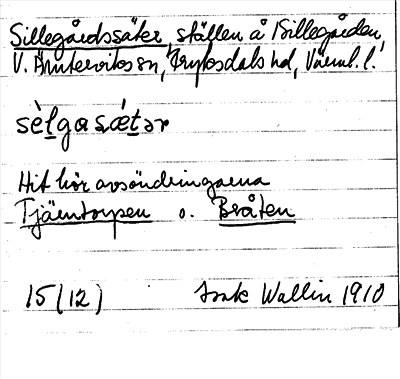 Sillegårdssäter, ställen å Sillegården,
V. Ämterviks sn, Fryksdals hd, Värml. l.
sèlgasǽtər
Hit hör avsöndringarna
Tjärntorpen o. Bråten
15(12) Isak Wallin 1910